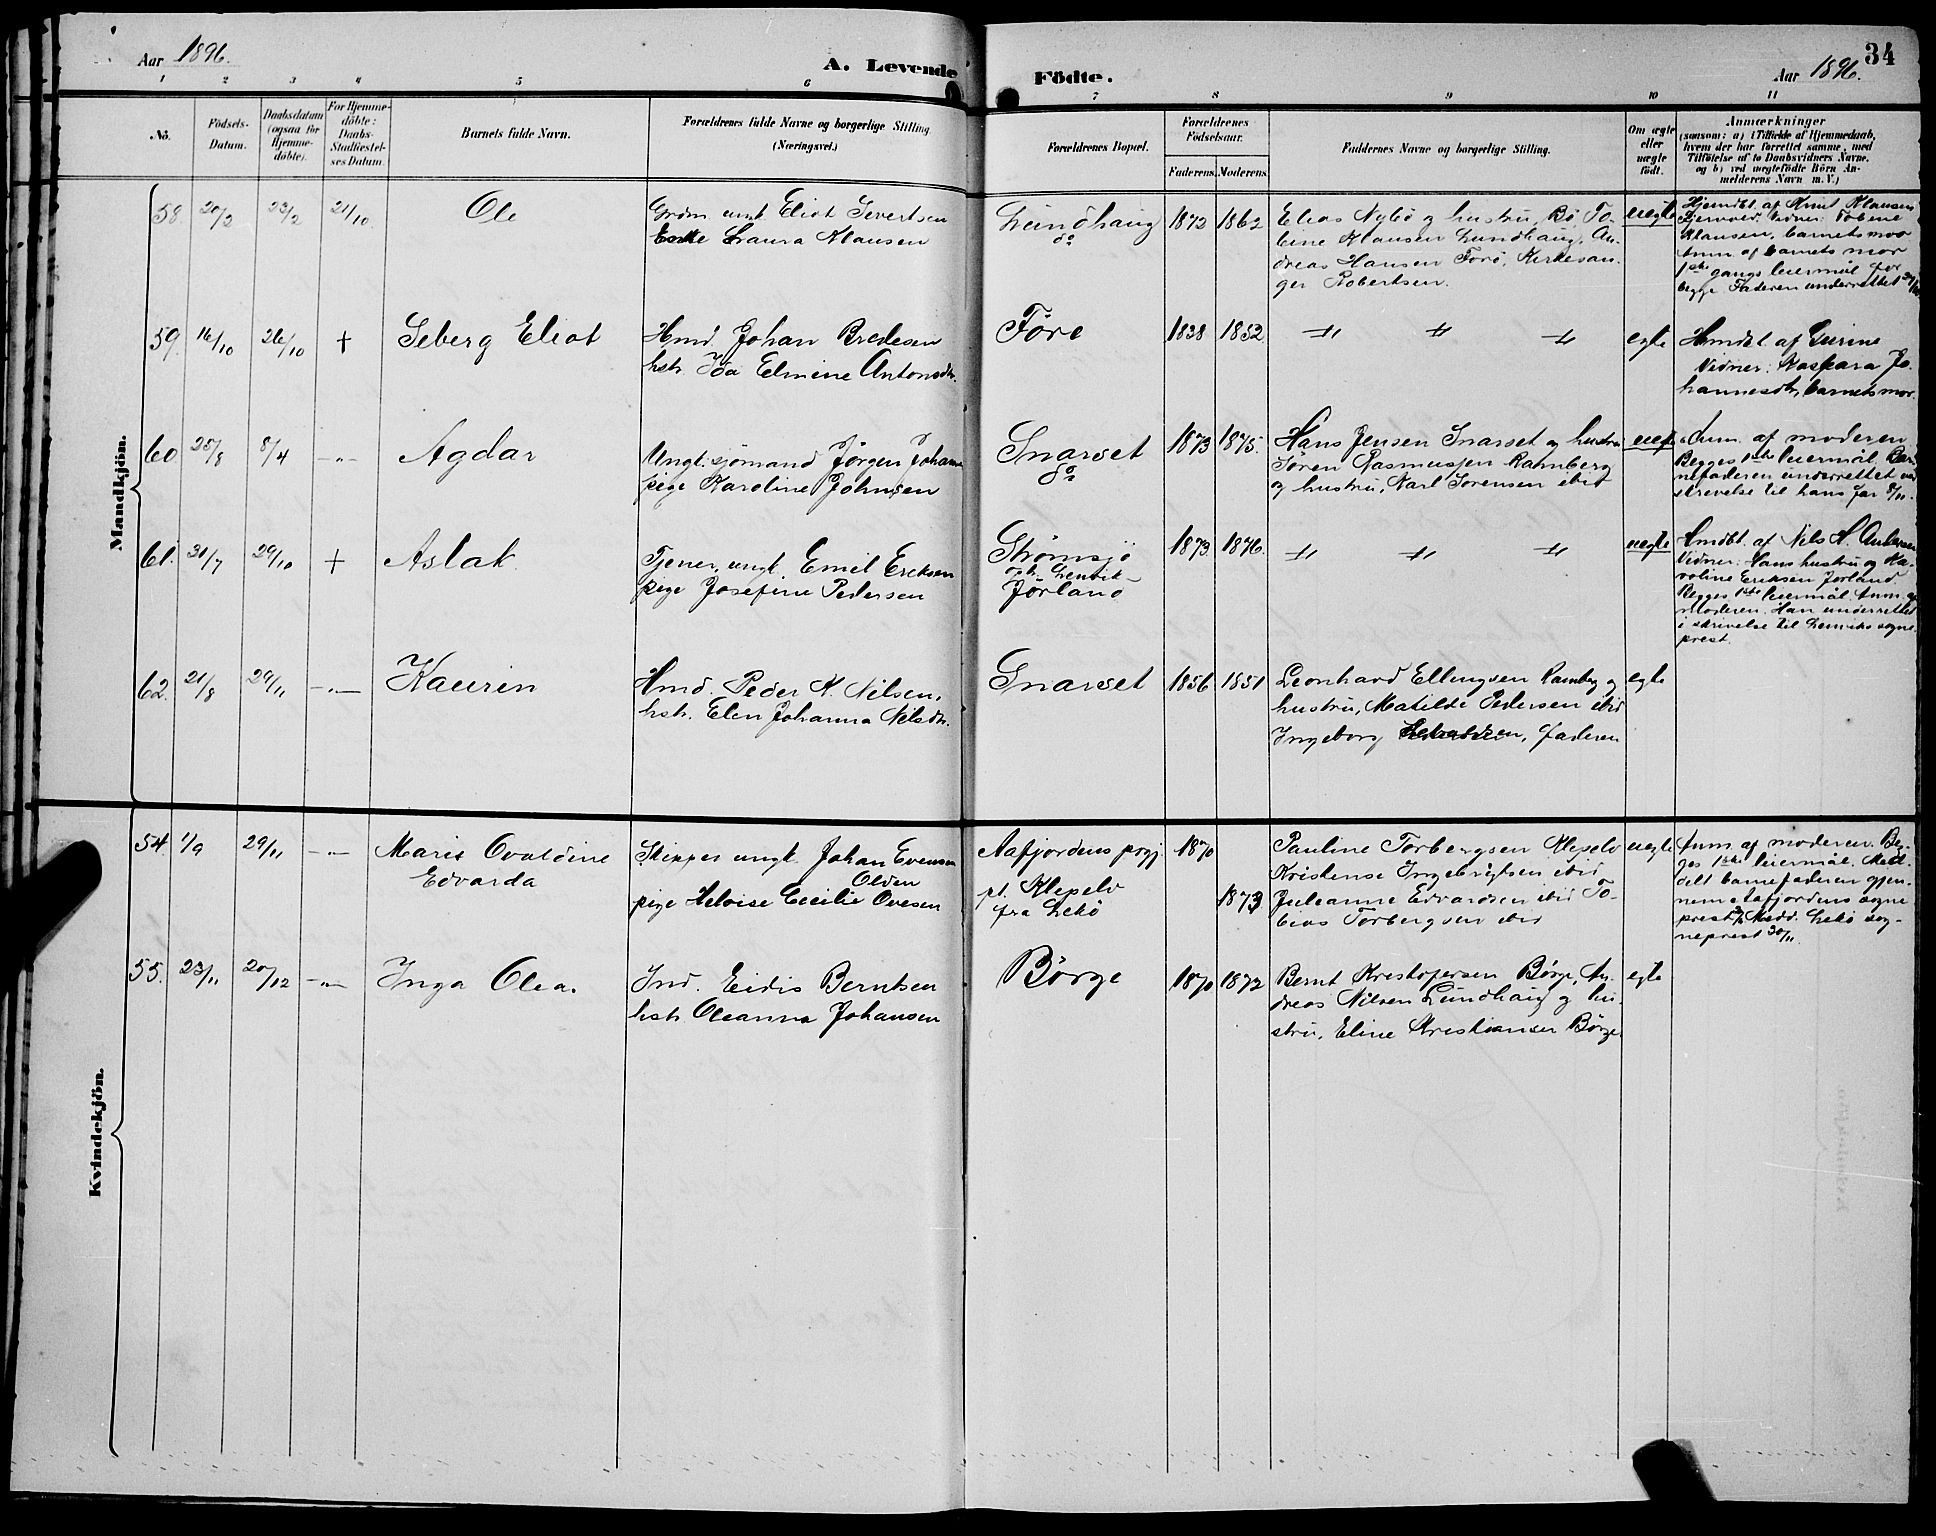 Aar 1896.
A. Levende Födte.
Aar 1896.
34
1 2 3 4 5 6 7 8 9 10 11
No.
Födsels-
Datum.
Daabsdatum
(ogsaa for
Hjemme-
döbte).
For Hjemme-
döbte:
Daabs-
Stadfæstel-
ses Datum.
Barnets fulde Navn.
Forældrenes fulde Navne og borgerlige Stilling
(Næringsvei.)
Forældrenes Bopæl.
Forældrenes
Födselsaar.
Faderens. Moderens.
Faddernes Navne og borgerlige Stilling.
Om ægte
eller
uægte
født.
Anmærkninger
(saasom: a) i Tilfælde af Hjemmedaab,
hvem der har forrettet samme, med
Tilföielse af to Daabsvidners Navne.
og b) ved uægtefödte Börn An-
melderens Navn m. V.)
Mandkjön.
58. 20/2 23/2 21/10 Ole
Grdm ungk. Eliot Sivertsen
Enke Laura Klausen
Lundhaug
do
1872 1862
Elias Nybö g hustru, Bö, To-
bine Klausen Lundhaug, An-
dreas Hansen Forö, Kirkesan-
ger Robertsen.
uegte
Hjemdbt. af Knut Klausen
Vidner: Tobine
Klausen, barnets mor
Anm. af barnets mor
1ste gangs leiermål for
begge Faderen underrettet
59. 16/10 26/10 + Seberg Eliot
Hmd. Johan Bredesen
hstr. Ida Elmine Antonsdtr.
Före
1838 1852
egte
Hmdbt. af Gurine
Vidner: Kaspara Jo-
hannesdtr, barnets mor.
60 25/8 8/4 -"- Agdar
Ungk. sjömand Jörgen Johan
pige Karoline Johnsen
Snarset
do
1873 1875.
Hans Jensen Snarset og hustru
Sören Rasmussen Ramberg
og hustru, Karl Sörensen ibid
uegte
Anm. af moderen
Begges 1ste leiermål. Bar-
nefaderen underrettet ved
skrivelse til hans far 8/11.
61. 31/7 29/10 + Aslak
Tjener, ungk. Emil Eriksen
pige Josefine Pedersen
Strömsjö
Lenvik-
Jörland
1873. 1876.
uegte
Hmdbt. af Nils H. Andersen
Vidner: Hans hustru og Ka-
roline Eriksen Jorland.
Begges 1ste leiermål. Anm. af
Moderen. Han underrettet
i skrivelse til Lenviks sogne-
prest.
62. 21/8 29/11 -"- Kaurin
Hmd. Peder K. Nilsen,
hstr. Elen Johanna Nilsdtr.
Snarset
1856 1851
Leonhard Ellingsen Ramberg og
hustru, Matilde Pedersen ibid
Ingeborg , faderen
egte
Kvindekjön.
54. 1/9 29/11 -"- Marie Ovaldine
Edvarda
Skipper ungk. Johan Evensen
Olden
pige Heloise Cecilie Ovesen
Aafjordens prgj.
pt. Klepelv
fra Lekö
1870
1873
Pauline Torbergsen Klepelv
Kristense Ingebrigtsen ibid
Juleanne Edvardsen ibid To-
bias Torbergsen ibid
uegte
Anm. af moderen. Beg-
ges 1ste leiermål. Med-
delt barnefaderen gjen-
nem Aafjordens sogne
prest. Medd. Lekö sog-
neprest 30/11.
55. 23/11 20/12 -"- Inga Olea.
Ind. Eidis Berntsen
hstr. Oleanna Johansen
Börge
1870 1872
Bernt Kristofersen Börge, An-
dreas Nilsen Lundhaug og hu-
stru, Eline Kristiansen Börge.
egte